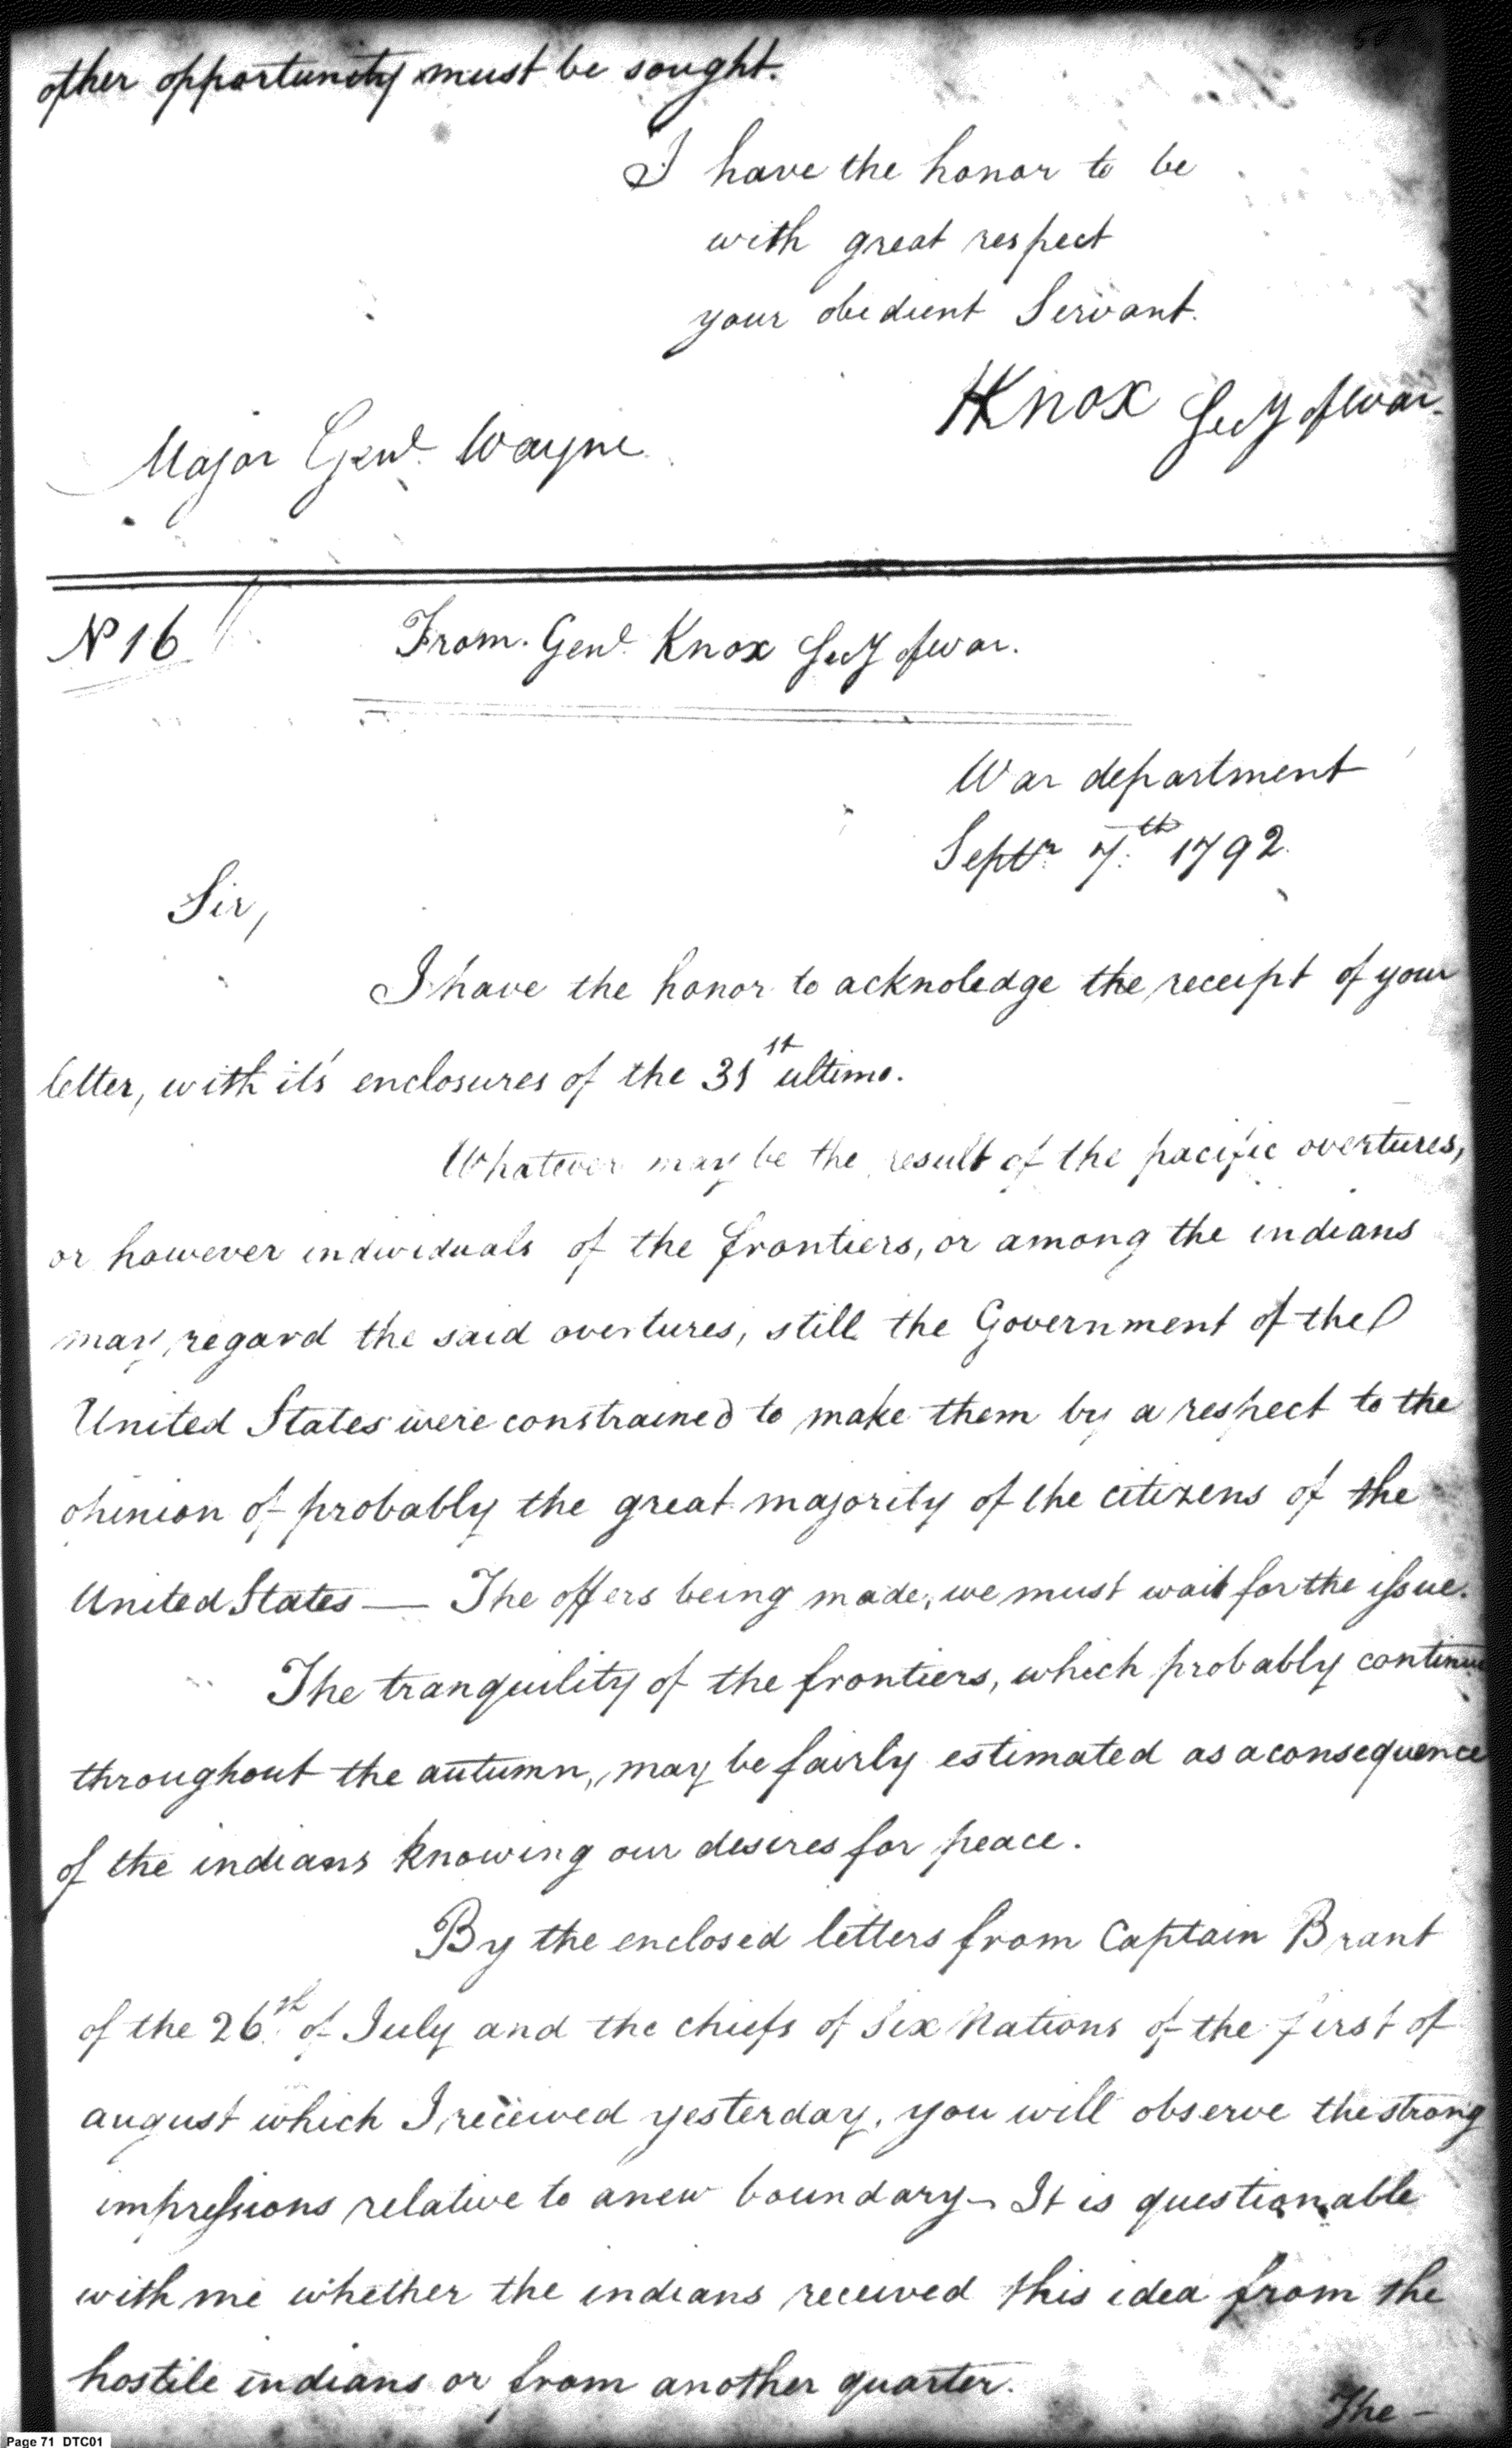 other opportunity must be sought.
I have the honor to be
with great respect
your obedient Servant.
HKnox Secy of war.
Major Genl. Wayne
No 16
From. Genl. Knox Secy of war.
War department
Septr 7.th 1792.
Sir,
I have the honor to acknoledge the receipt of your
letter, with it's enclosures of the 31st ultimo.
Whatever may be the result of the pacific overtures,
or however individuals of the frontiers, or among the indians
may regard the said overtures, still the Government of the
United States were constrained to make them by a respect to the
opinion of probably the great majority of the citizens of the
United States — The offers being made, we must wait for the issue.
The tranquility of the frontiers, which probably continue
throughout the autumn, may be fairly estimated as a consequence
of the indians knowing our desires for peace.
By the enclosed letters from Captain Brant
of the 26.th of July and the chiefs of Six Nations of the first of
august which I received yesterday, you will observe the strong
impressions relative to a new boundary – It is questionable
with me whether the indians received this idea from the
hostile indians or from another quarter.
The –
Page 71 DTC01